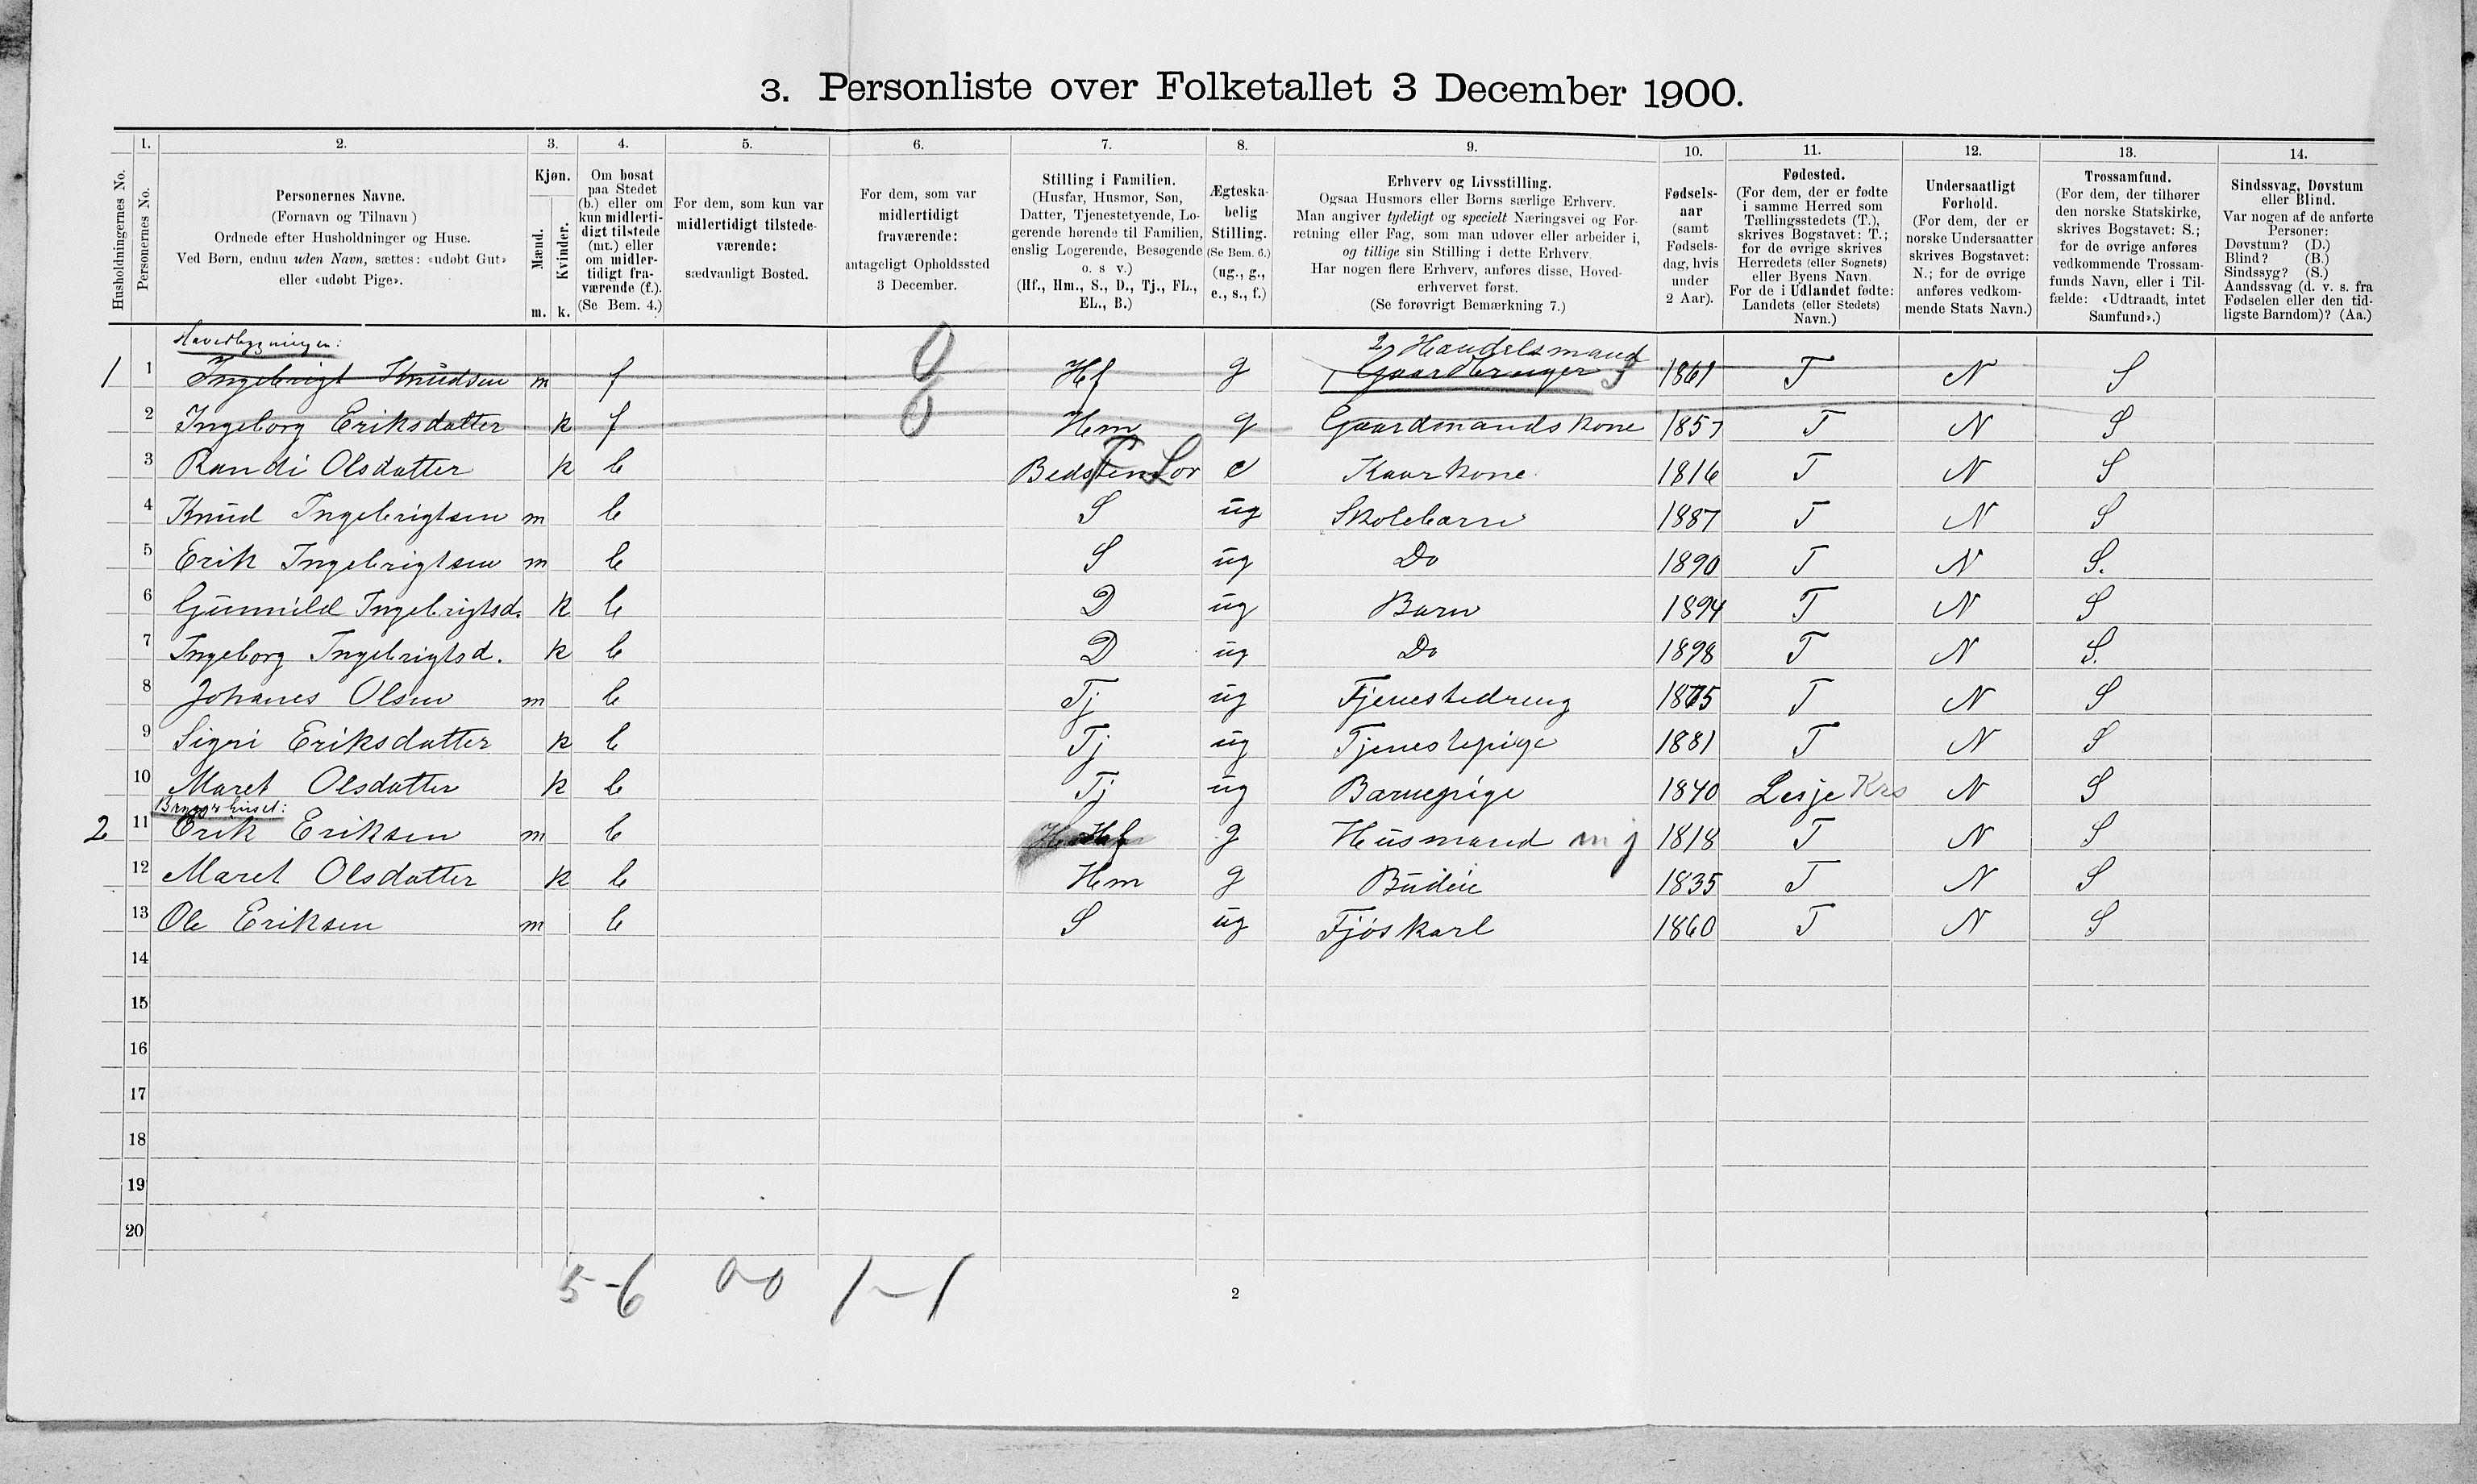 3. Personliste over Folketallet 3 December 1900.
Husholdningernes No.
1.
Personernes No.
2.
Personernes Navne.
(Fornavn og Tilnavn)
Ordnede efter Husholdninger og Huse.
Ved Børn, endnu uden Navn, sættes: «udøbt Gut»
eller «udøbt Pige».
3.
Kjøn.
Mænd.
Kvinder.
m. k.
4.
Om bosat
paa Stedet
(b.) eller om
kun midlerti-
digt tilstede
(mt.) eller
om midler-
tidigt fra-
værende (f.).
(Se Bem. 4.)
5.
For dem, som kun var
midlertidigt tilstede-
værende:
sædvanligt Bosted.
6.
For dem, som var
midlertidigt
fraværende:
antageligt Opholdssted
3 December.
7.
Stilling i Familien.
(Husfar, Husmor, Søn,
Datter, Tjenestetyende, Lo-
gerende hørende til Familien,
enslig Logerende, Besøgende
o. s v.)
(Hf., Hm., S., D., Tj., FL.,
EL., B.)
8.
Ægteska-
belig
Stilling.
(Se Bem. 6.)
(ug., g.,
e., s., f.)
9.
Erhverv og Livsstilling.
Ogsaa Husmors eller Børns særlige Erhverv.
Man angiver tydeligt og specielt Næringsvei og For-
retning eller Fag, som man udøver eller arbeider i,
og tillige sin Stilling i dette Erhverv.
Har nogen flere Erhverv, anføres disse, Hoved-
erhvervet først.
(Se forøvrigt Bemærkning 7.)
10.
Fødsels-
aar
(samt
Fødsels-
dag, hvis
under
2 Aar).
11.
Fødested.
(For dem, der er fødte
i samme Herred som
Tællingsstedets (T.),
skrives Bogstavet: T.;
for de øvrige skrives
Herredets (eller Sognets)
eller Byens Navn.
For de i Udlandet fødte:
Landets (eller Stedets)
Navn.)
12.
Undersaatligt
Forhold.
(For dem, der er
norske Undersaatter
skrives Bogstavet:
N.; for de øvrige
anføres vedkom-
mende Stats Navn.)
13.
Trossamfund.
(For dem, der tilhører
den norske Statskirke,
skrives Bogstavet: S.;
for de øvrige anføres
vedkommende Trossam-
funds Navn, eller i Til-
fælde: «Udtraadt, intet
Samfund».)
14.
Sindssvag, Døvstum
eller Blind.
Var nogen af de anførte
Personer:
Døvstum? (D.)
Blind? (B.)
Sindssyg? (S.)
Aandssvag (d. v. s. fra
Fødselen eller den tid-
ligste Barndom)? (Aa.)
Hovedbygningen:
2, Handelsmand
1 1 Ingebrigt Knudsen m f Hf g 1, Gaardbruger S 1861 T N S
2 Ingeborg Eriksdatter k f Hm g Gaardmandskone 1857 T N S
3 Randi Olsdatter k b e Kaarkone 1816 T N S
4 Knud Ingebrigtsen m b S ug Skolebarn 1887 T N S
5 Erik Ingebrigtsen m b S ug Do 1890 T N S.
6 Gunnild Ingebrigtsd. k b D ug Barn 1894 T N S
7 Ingeborg Ingebrigtsd. k b D ug Do 1898 T N S.
8 Johanes Olsen m b Tj ug Tjenestedreng 1885 T N S
9 Sigri Eriksdatter k b Tj ug Tjenestepige 1881 T N S
10 Maret Olsdatter k b Tj ug Barnepige 1840 Lesje Krs N S
Bryggerhuset:
2 11 Erik Eriksen m b Hf g Husmand m j 1818 T N S
12 Maret Olsdatter k b Hm g Budeie 1835 T N S
13 Ole Eriksen m b S ug Fjøskarl 1860 T N S
14
15
16
17
18
19
20
5-6 0-0 1-1
2